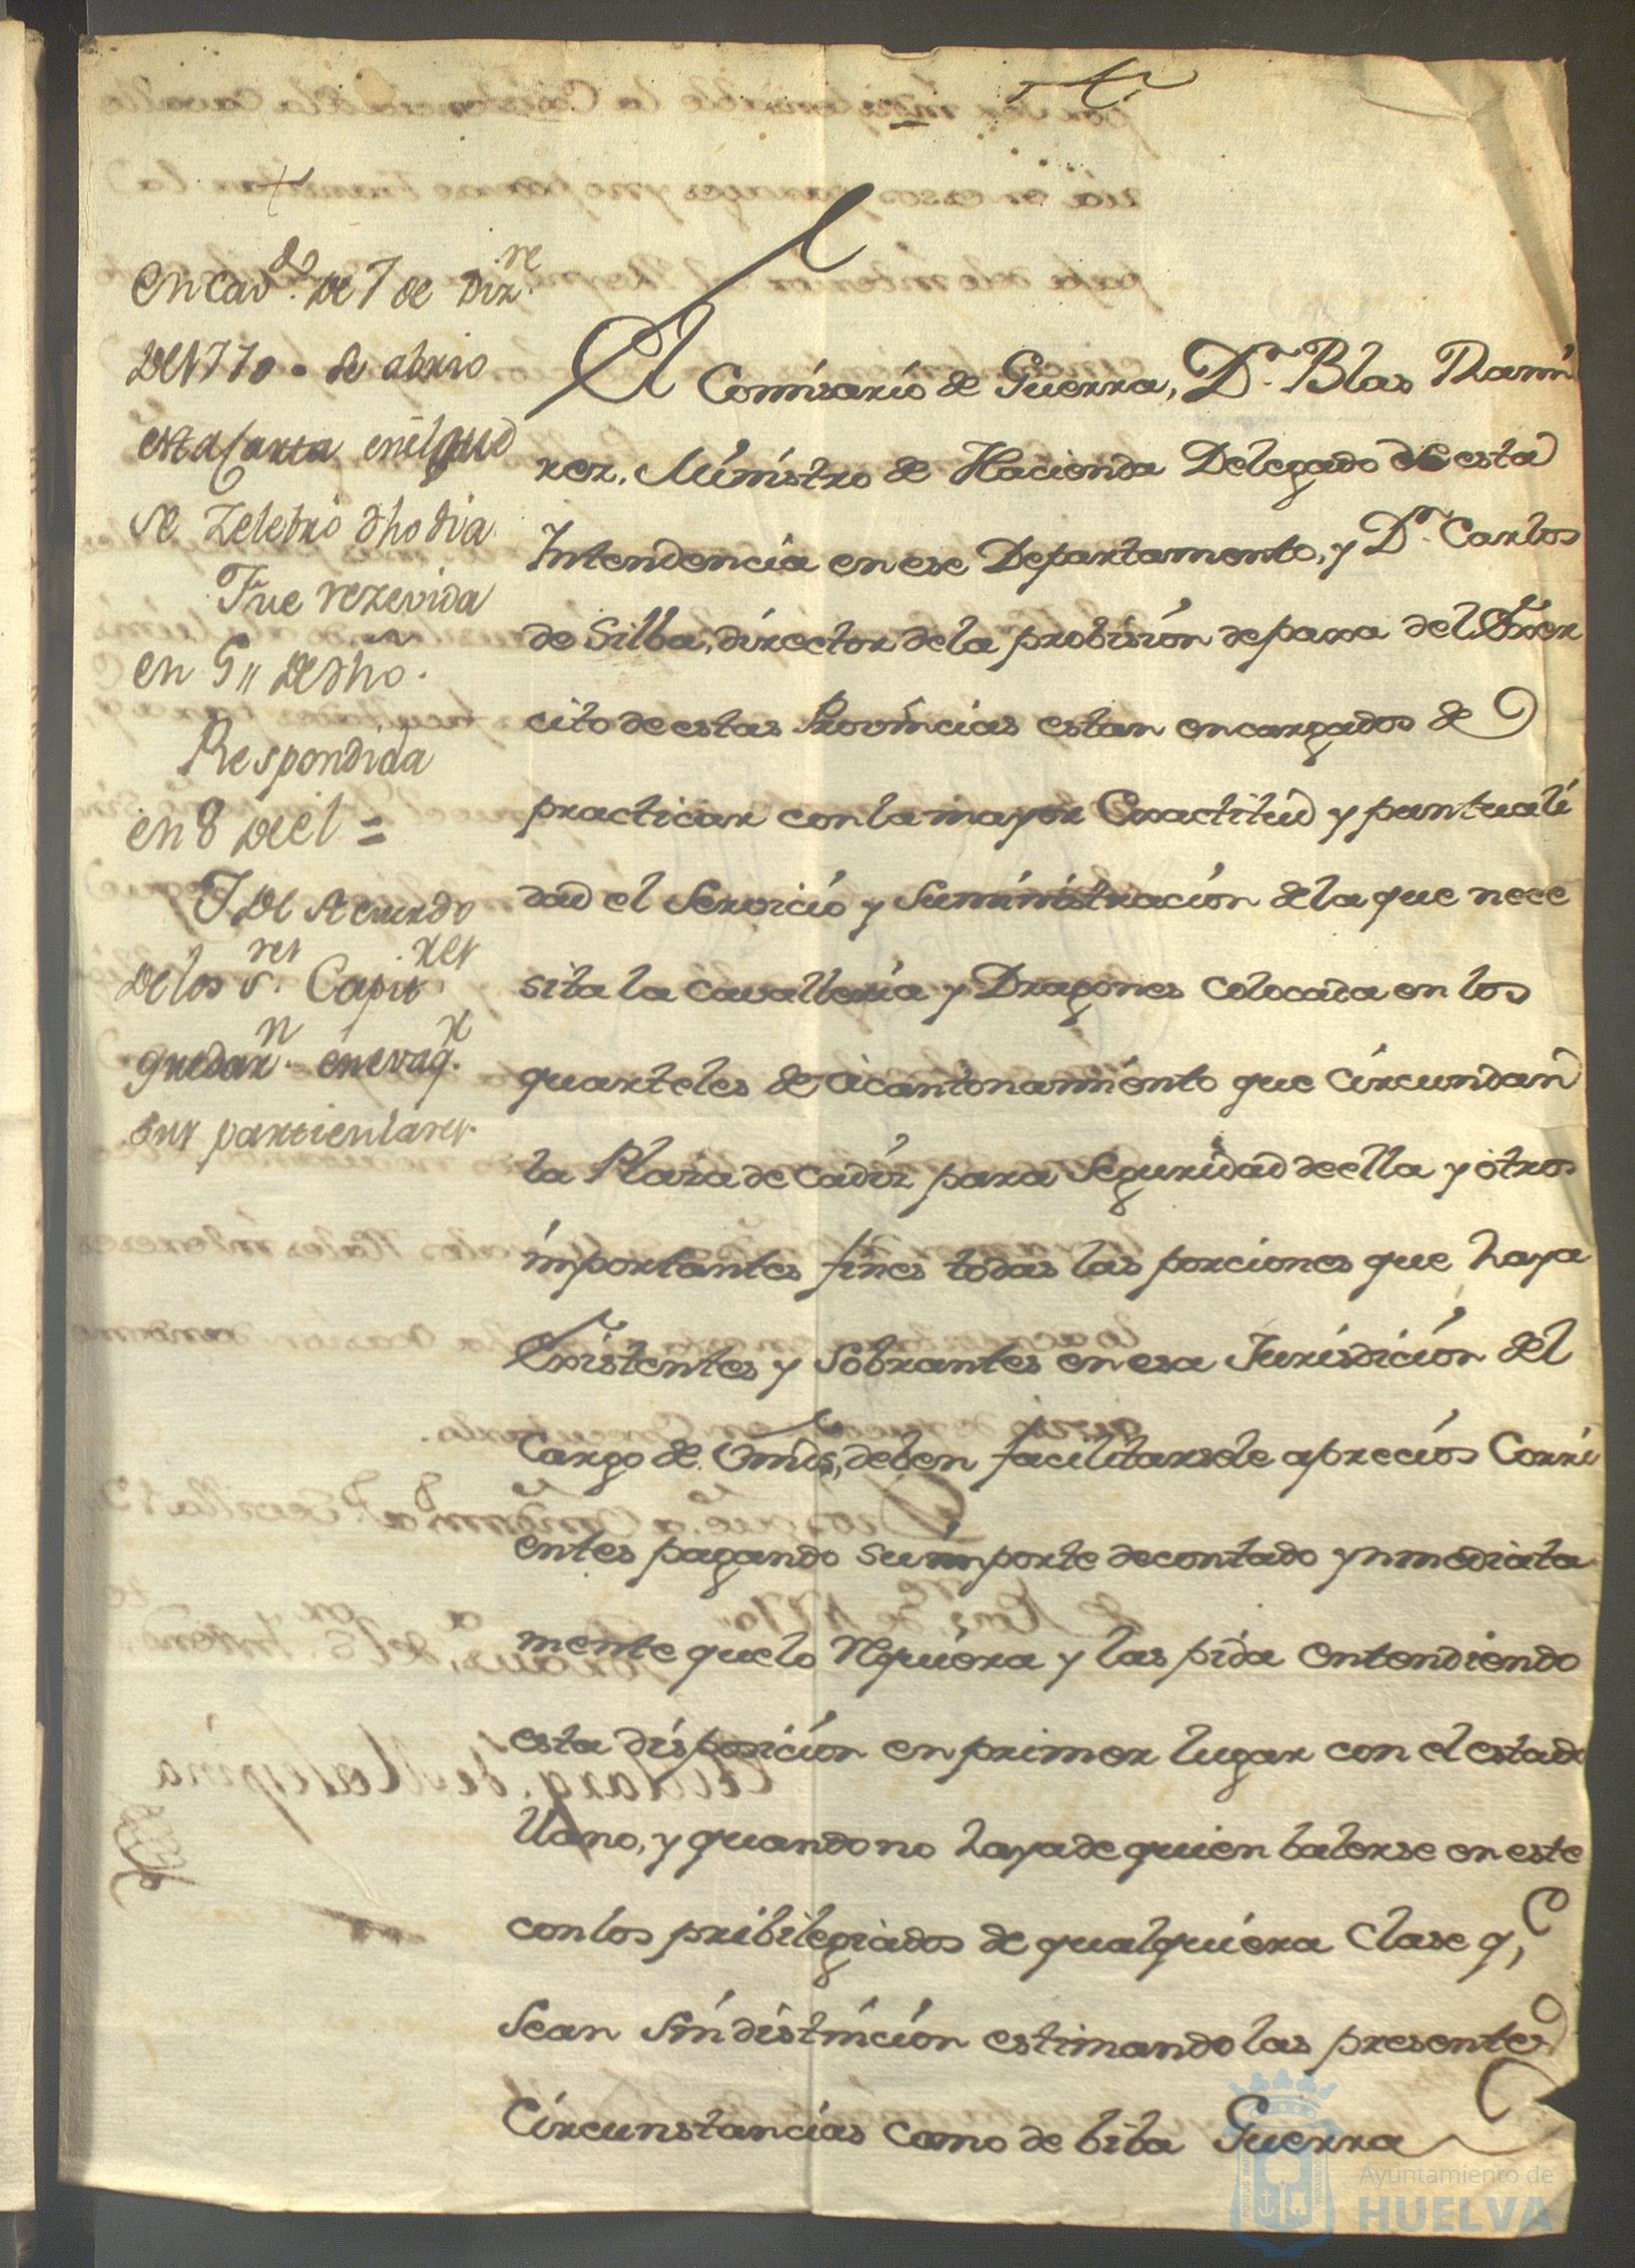 en cav.do de 7 de Diz.re
de 1770. Se abrio
esta Carta en el que
se Zelebro dho dia.
Fue rezevida
en 5,, de dho.
Respondida
en 8 del =
I de Acuerdo
de los S.res Capit.res
quedar.n
sus particulares.
El Comisario de Guerra, D.n Blas Rami
rez, Ministro de Hacienda Delegado de esta
Intendencia en ese Departamento, y D.n Carlos
de Silba, director de la probision de paxa del Exer
cito de estas Provincias estan encargados de
practicar con la mayor Exactitud y puntuali
dad el Servicio y Suministracion de la que nece
sita la Cavalleria y Dragones Colocada en los
quarteles de acantonamiento que Circundan
la Plaza de Cadiz para Seguridad de ella y otros
importantes fines todas las porciones que haya
Existentes y Sobrantes en esa Jurisdicion del
Cargo de Vmds, deben facilitarsele a precios Corri
entes pagando su importe de contado ynmediata
mente que lo Rquiera y las pida entendiendo
esta disposicion en primer lugar con el estado
llano, y quando no haya de quien balerse en este
con los pribilegiados de qualquiera Clase q,e
Sean Sin distincion estimando las presentes
Circunstancias Como de biba Guerra
Ayuntamiento de
HUELVA